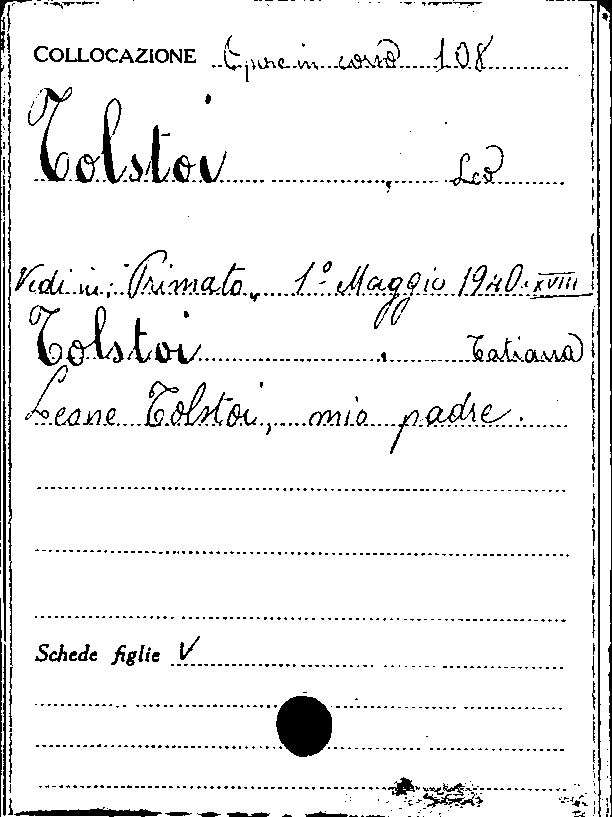 COLLOCAZIONE Opere in corso 108
Tolstoi, Leo
Vedi in: "Primato" 1° Maggio 1940-XVIII
Tolstoi, Tatiana
Leone Tolstoi, mio padre.
Schede figlie V